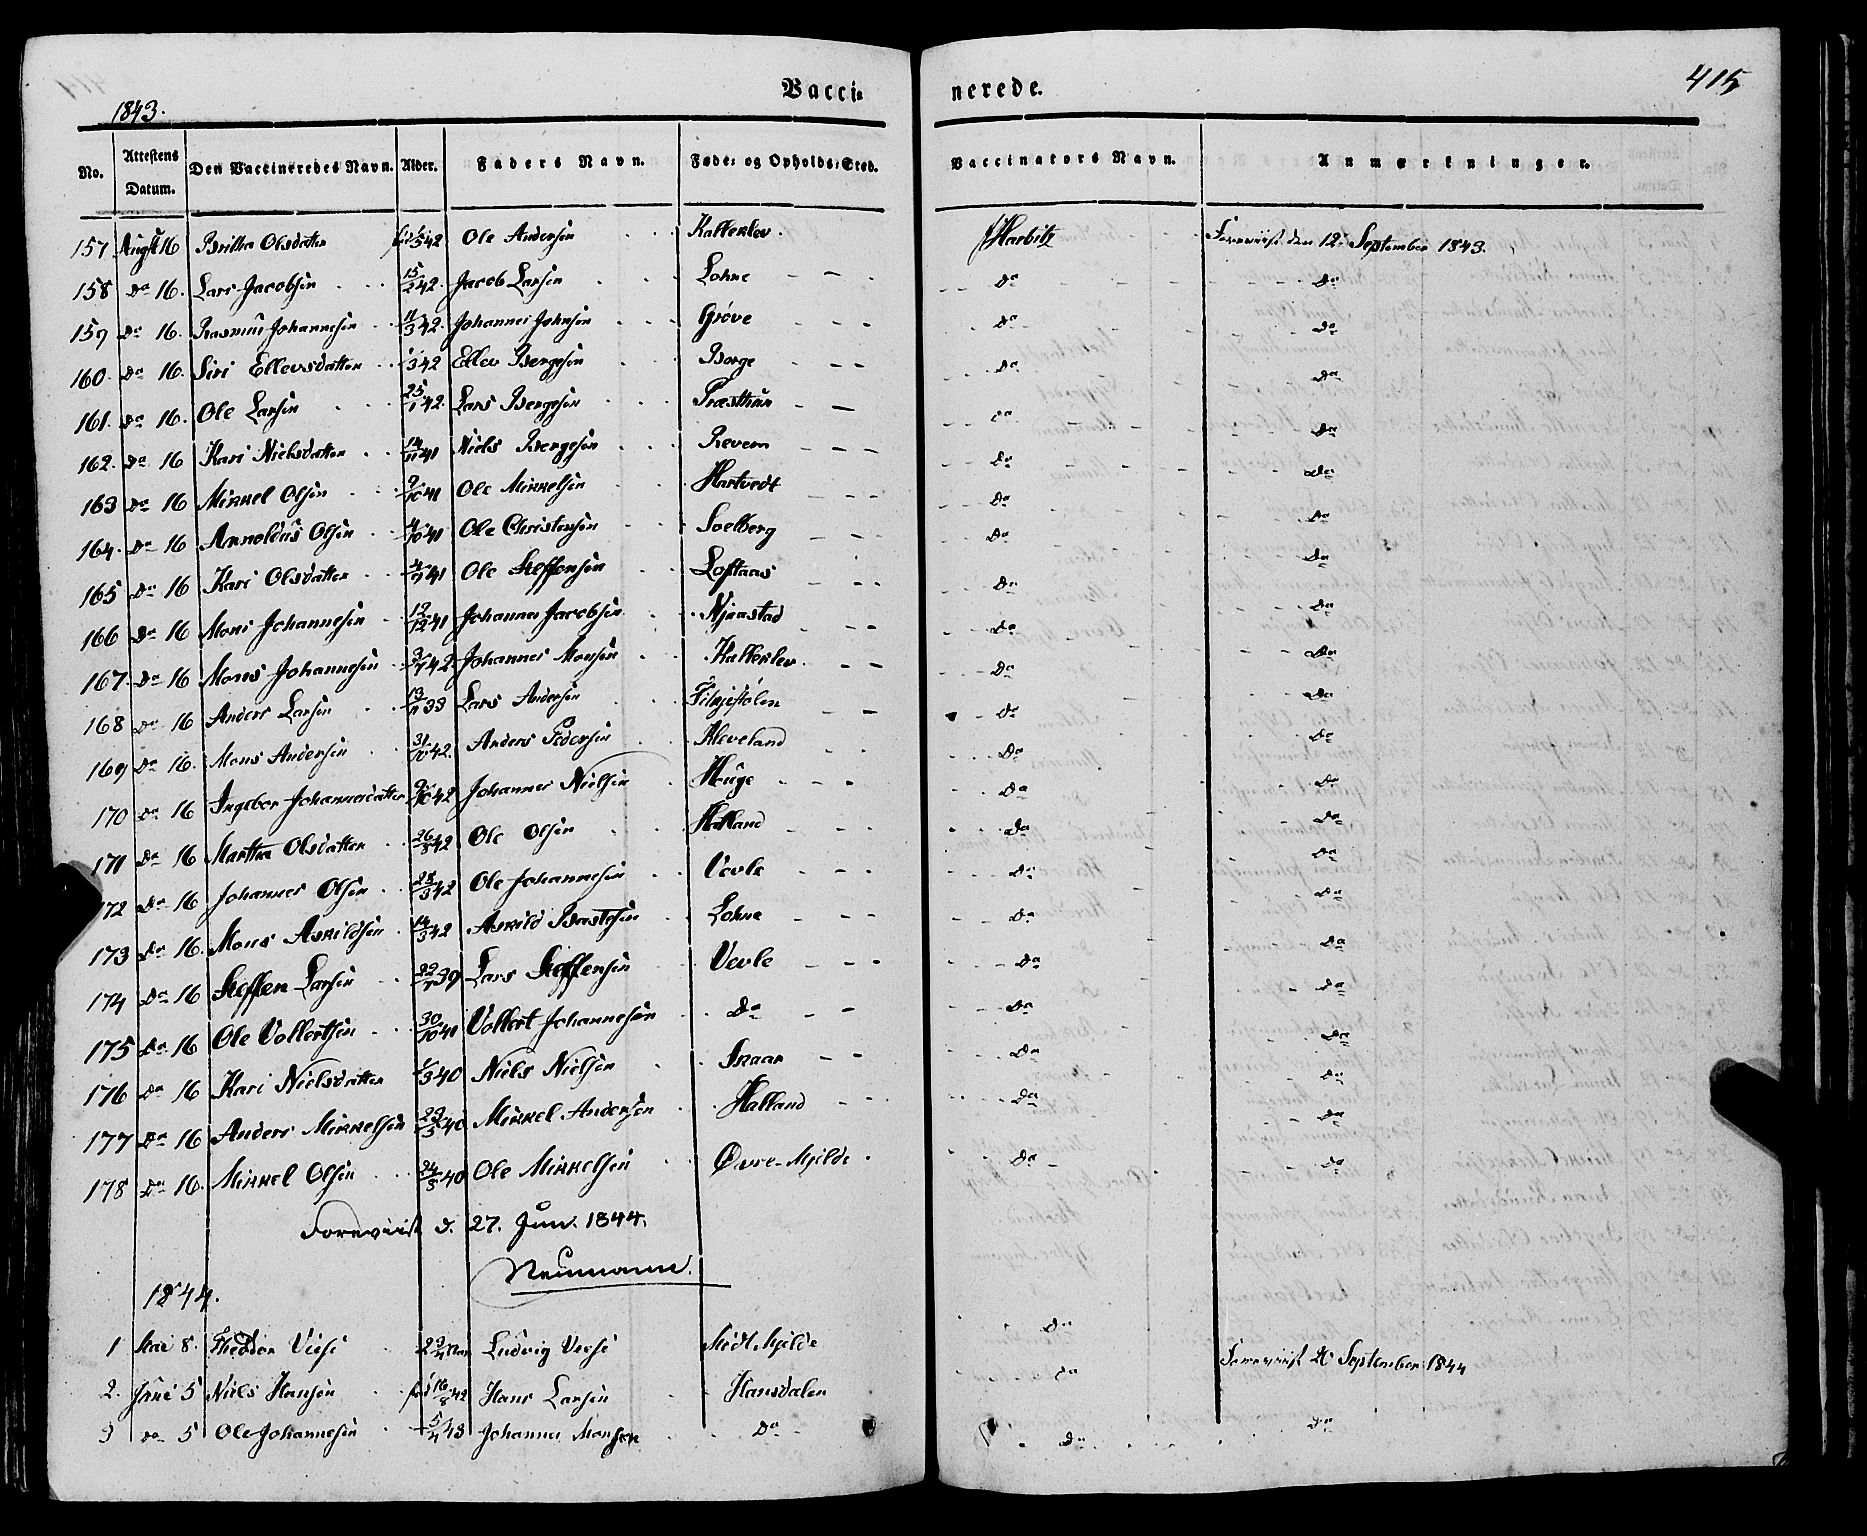 Vaccinerede.
415
1843.
No. Attestens Datum. Den Vaccineredes Navn. Alder. Faders Navn. Føde- og Opholds-Sted. Vaccinators Navn. Anmærkninger.
157 August 16 Britha Olsdatter 42 Ole Andersen Kalleklev. Harbitz Foreviist den 12 September 1843.
158 Do 16. Lars Jacobsen 15/2 42. Jacob Larsen Lohne Do Do
159 Do 16. Rasmus Johannesen 11/3 42. Johannes Johnsen Grove Do Do
160. Do 16. Siri Ellevsdatter 1/3 42 Ellev Bergesen Borge Do Do
161. Do 16. Ole Larsen 25/1 42. Lars Bergesen Præsthun Do Do
162. Do 16 Kari Nielsdatter 14/11 41 Niels Bergesen Revem Do Do
163 Do 16 Mikkel Olsen 9/10 41 Ole Mikkelsen Hartvedt Do Do
164. Do 16 Arnoldus Olsen 4/10 41 Ole Christensen Soelberg Do Do
165 Do 16 Kari Olsdatter 4/7 41 Ole Steffensen Loftaas Do Do
166 Do 16 Mons Johannesen 12/12 41 Johannes Jacobsen Njaastad Do Do
167. Do 16 Mons Johannesen 3/7 42 Johannes Monsen Kalleklev. Do Do
168 Do 16 Anders Larsen 13/11 33 Lars Andersen Tilhjestølen Do Do
169 Do 16. Mons Andersen 31/10 42. Anders Pedersen Kleveland Do Do
170 Do 16 Ingebor Johannesdatter 9/10 42 Johannes Nielsen Huge Do Do
171 Do 16 Martha Olsdatter 26/8 42 Ole Olsen Hatland Do Do
172 Do 16 Johannes Olsen 28/3 42 Ole Johannesen Vevle Do Do
173 Do 16. Mons Askildsen 14/3 42 Askild Brastesen Lohne Do Do
174 Do 16 Steffen Larsen 22/7 39 Lars Steffensen Vevle Do Do
175 Do 16 Ole Vollertsen 30/10 41 Vollert Johannesen Do Do Do
176 Do 16 Kari Nielsdatter 1/3 40 Niels Nielsen Skaar Do Do
177 Do 16 Anders Mikkelsen 23/5 40 Mikkel Andersen Halland Do Do
178 Do 16. Mikkel Olsen 24/3 40 Ole Mikkelsen Øvre-Mjelde Do Do
Foreviist d. 27. Jun. 1844.
Neumann.
1844.
1 Mai 8. Theodor Viese Ludvig Viese Midt Mjelde Do Foreviist 20 September 1844
2. Juni 5 Niels Hansen 16/8 42 Hans Larsen Hansdalen Do
3 Do 5 Ole Johannesen 5/11 43 Johannes Monsen Do Do Do